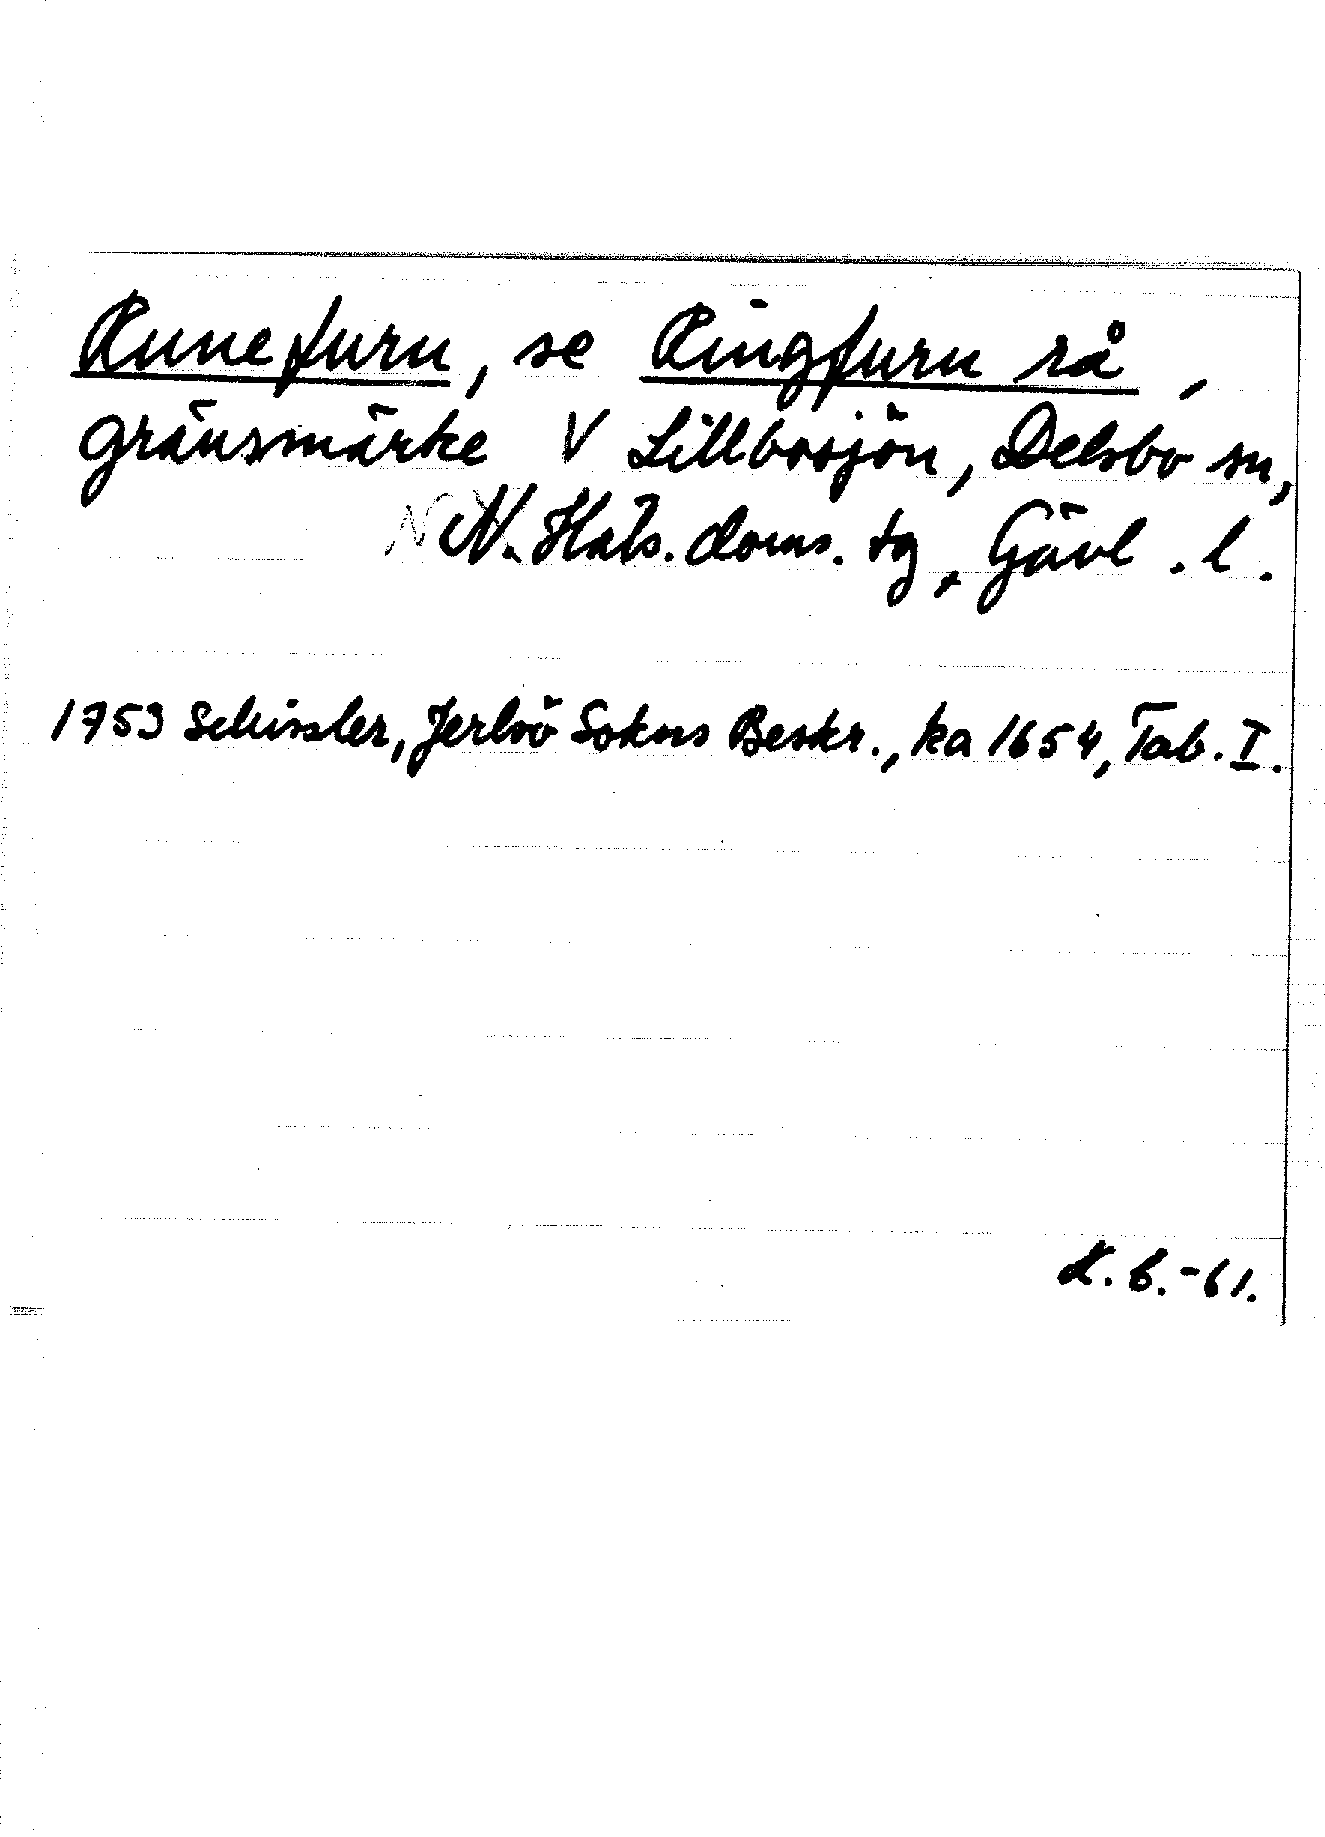 Runefuru, se Ringfuru rå,
gränsmärke V Lillbosjön, Delsbo sn,
N. Häls. doms. tg, Gävl. l.
1753 Schissler, Jerlvö Sokns Beskr., ka 1654, Tab. I.
K. B. -61.